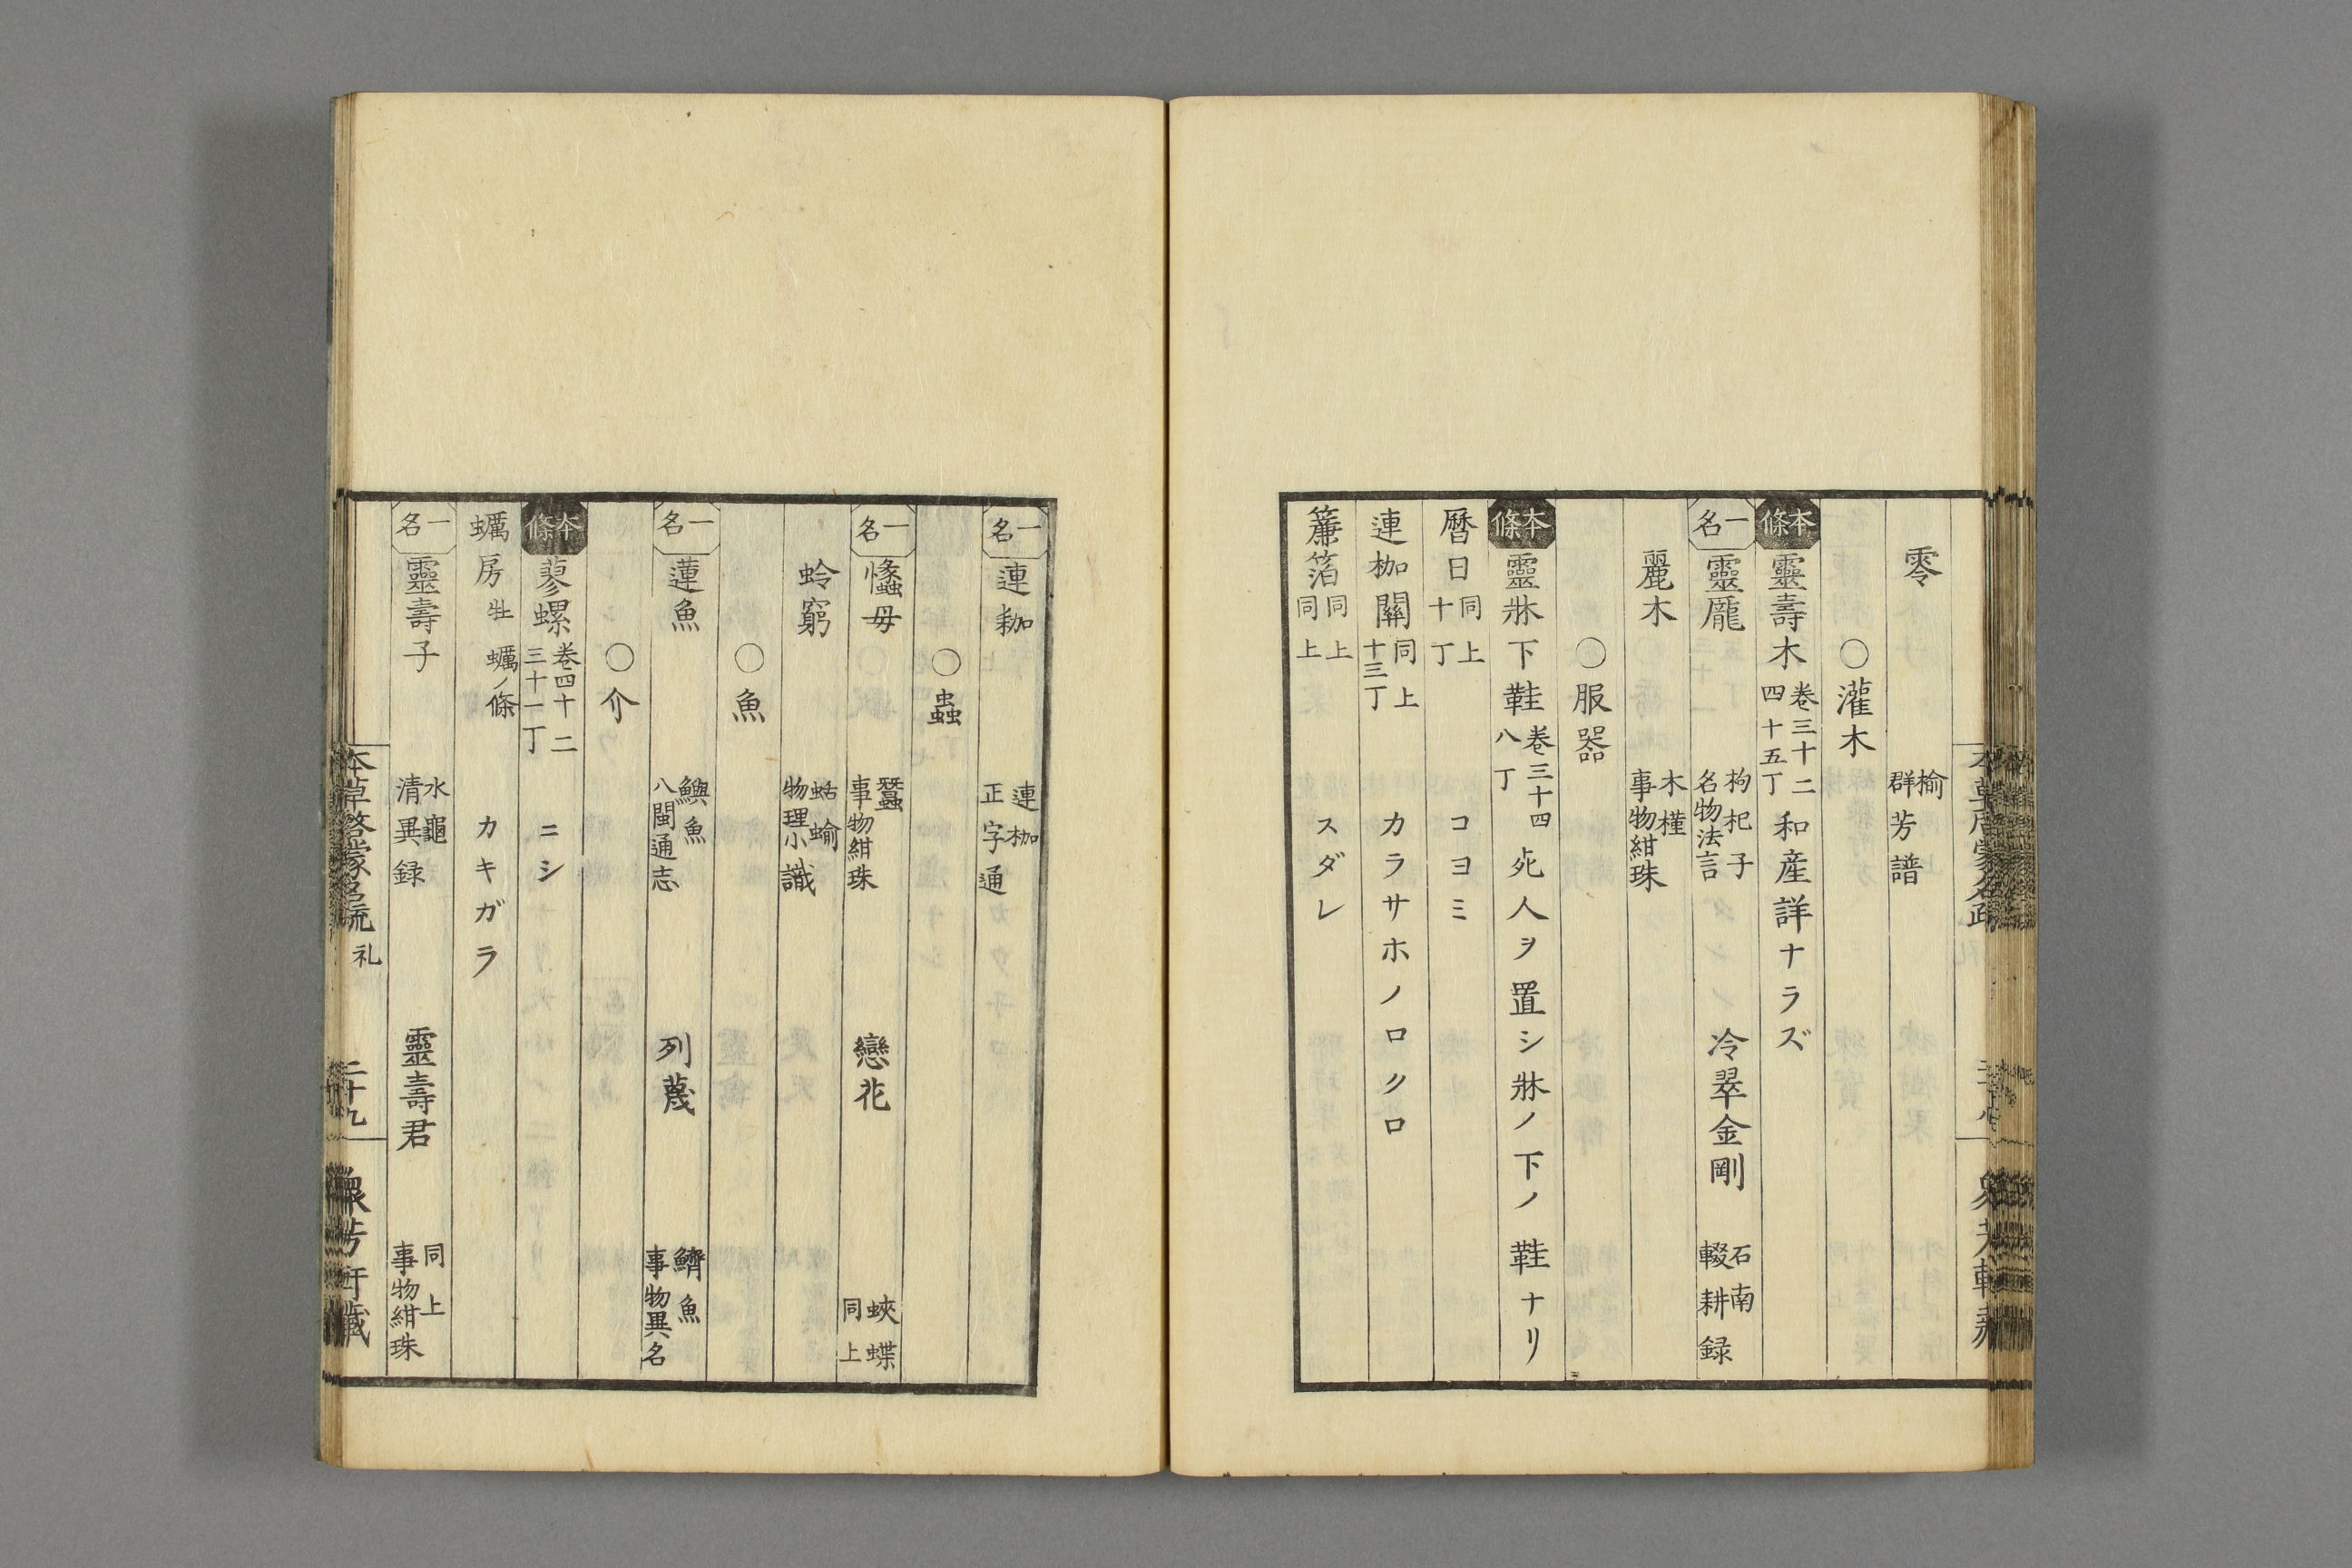 零 榆 群芳譜
○灌木
本條 靈壽木 卷三十二 四十五丁 和産詳ナラズ
一名 靈龎 枸杞子 名物法言 冷翠金剛 石南 輟耕録
麗木 木槿 事物紺珠
○服器
本條 靈牀下鞋 卷三十四 八丁 死人ヲ置シ牀ノ下ノ鞋ナリ
曆日 同上 十丁 コヨミ
連枷關 同上 十三丁 カラサホノロクロ
簾箔 同上 同上 スダレ
一名 連耞 連枷 正字通
○蟲
一名 蠶 事物紺珠 戀花 蛺蝶 同上
蛉窮 蛞蝓 物理小識
○魚
一名 蓮魚 鱮魚 八閩通志 列䓲 鱭魚 事物異名
○介
本條 蓼螺 卷四十二 三十一丁 ニシ
蠣房 牡蠣ノ條 カキガラ
一名 靈壽子 水龜 清異録 靈壽君 同上 事物紺珠
本草啓蒙名疏 礼 二十九 衆芳軒藏